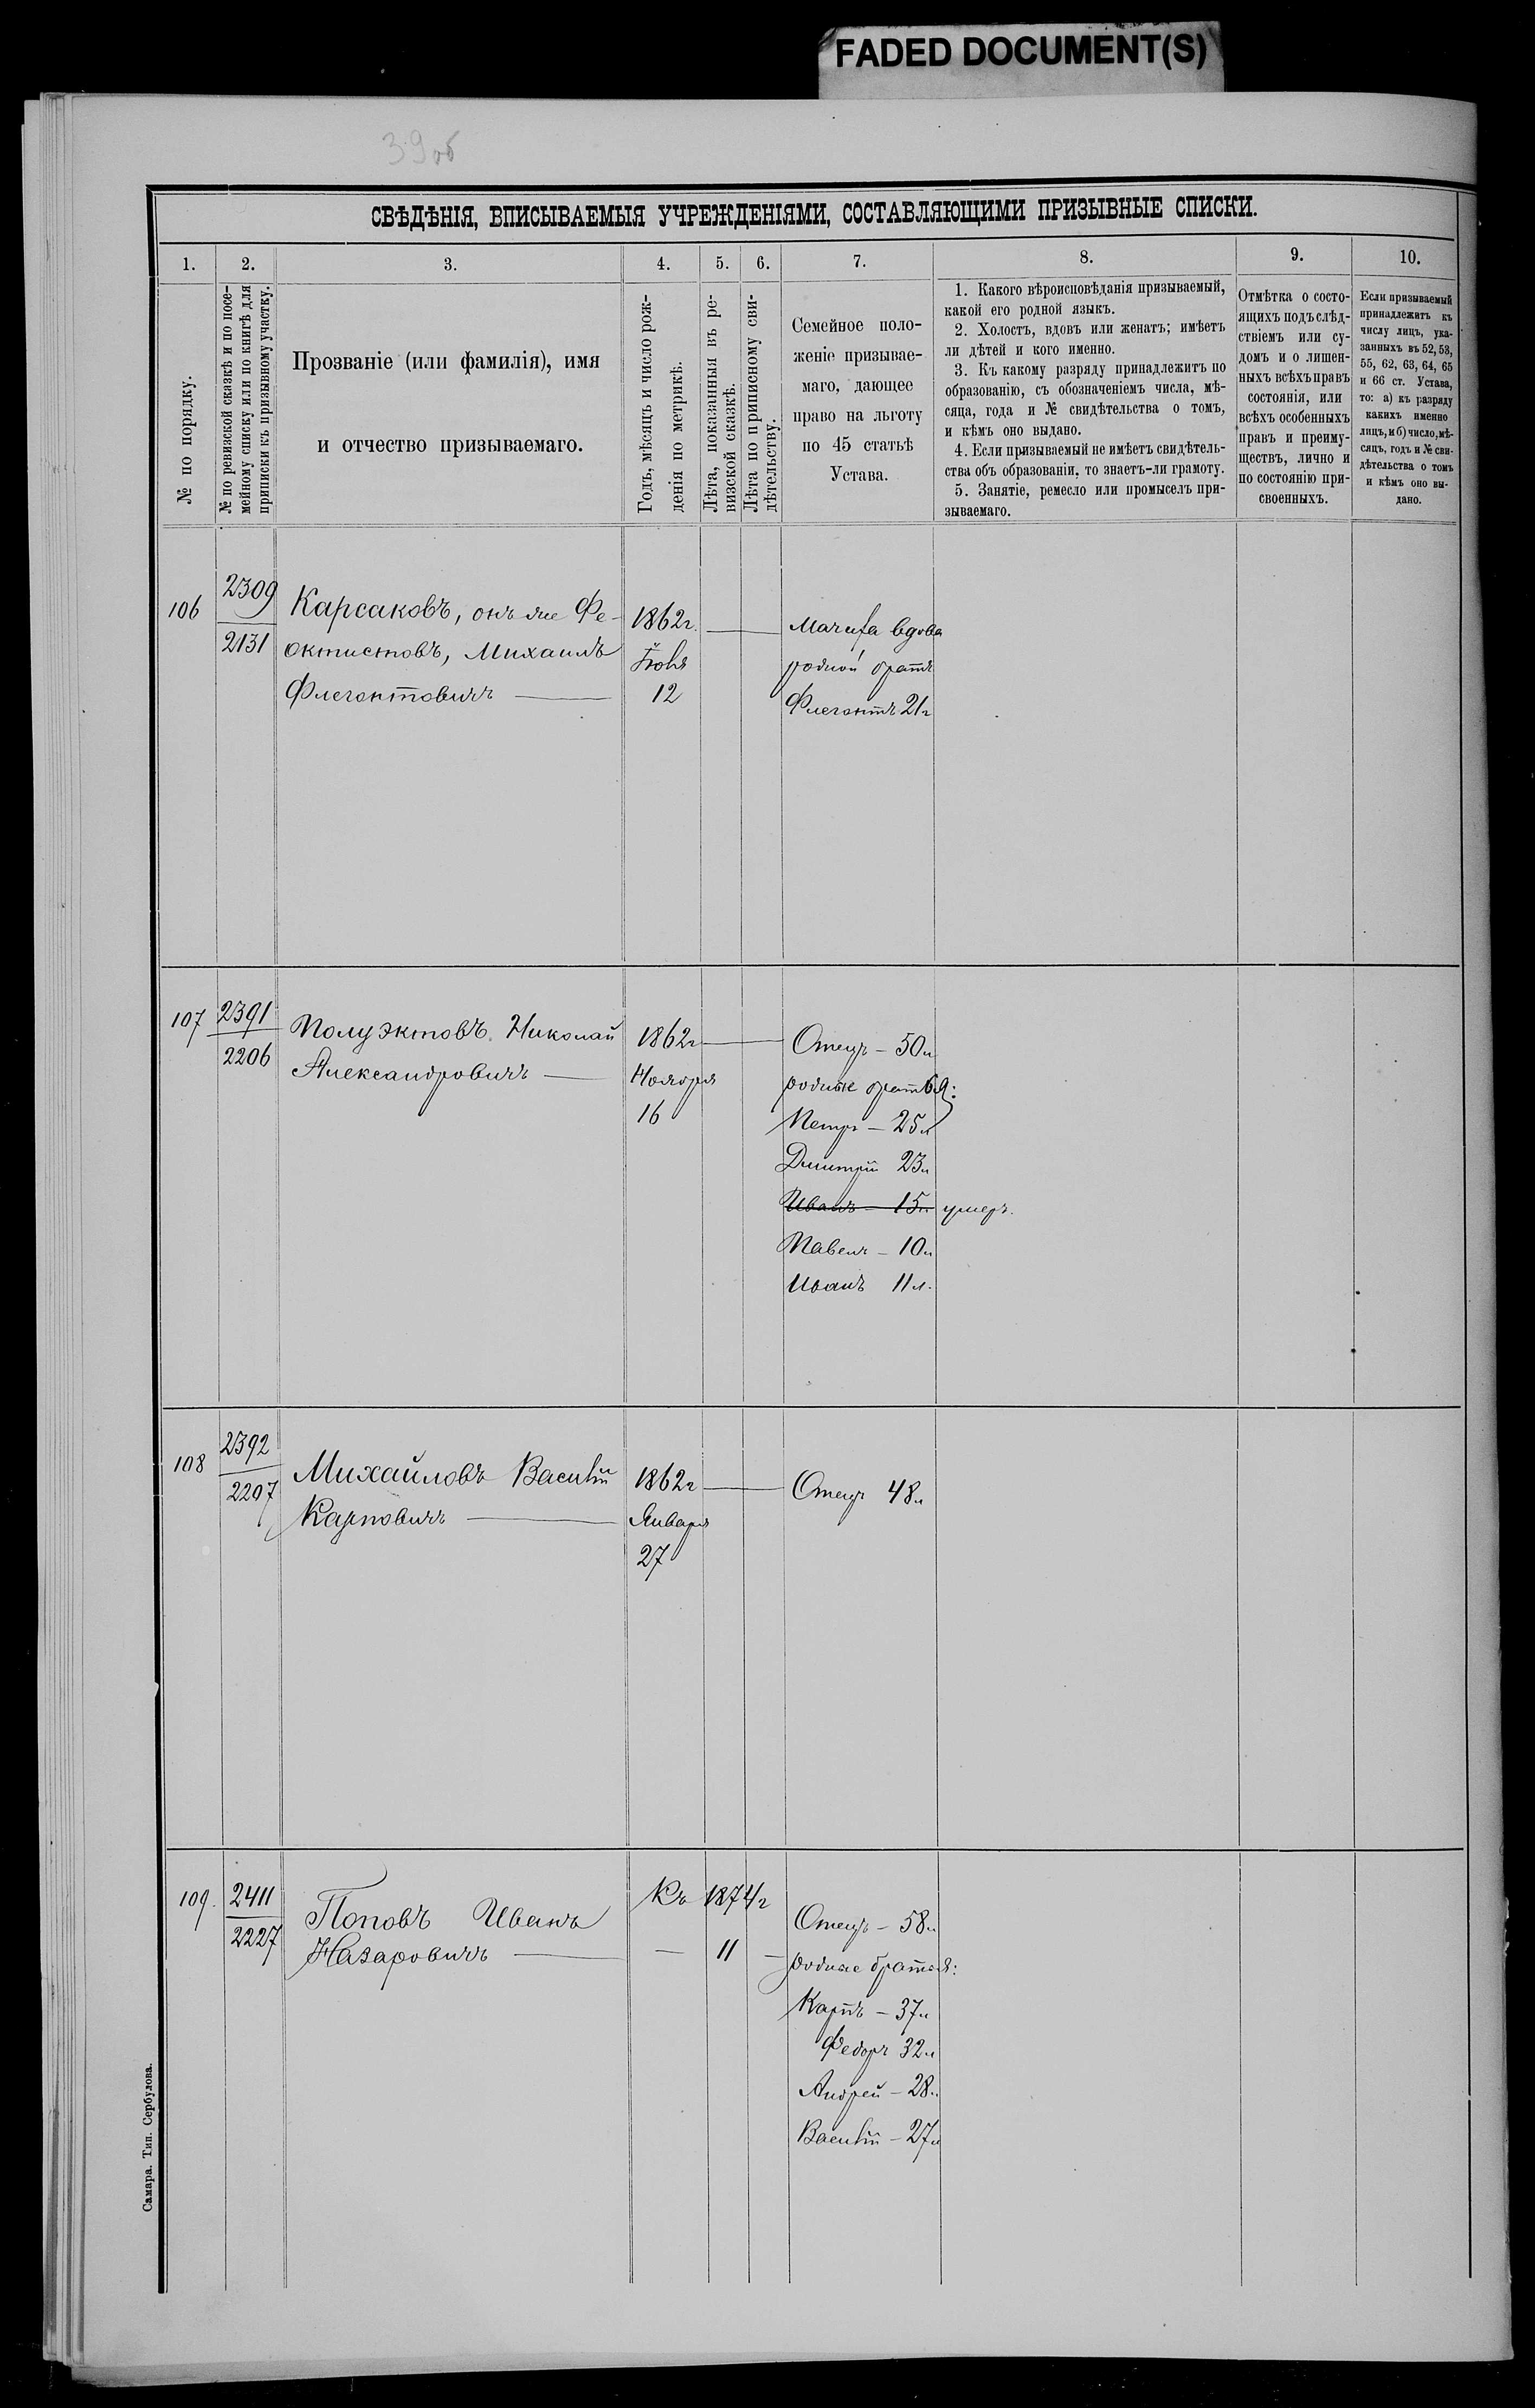 FADED DOCUMENT(S)
39об
СВѢДѢНІЯ, ВПИСЫВАЕМЫЯ УЧРЕЖДЕНІЯМИ, СОСТАВЛЯЮЩИМИ ПРИЗЫВНЫЕ СПИСКИ.
1.
2.
3.
4.
5.
6.
7.
8.
9.
10.
№ по порядку.
№ по ревизской сказкѣ и по посе-
мейному списку или по книгѣ для
приписки къ призывному участку.
Прозваніе (или фамилія), имя
и отчество призываемаго.
Годъ, мѣсяцъ и число рож-
денія по метрикѣ.
Лѣта, показанныя въ ре-
визской сказкѣ.
Лѣта по приписному сви-
дѣтельству.
Семейное поло-
женіе призывае-
маго, дающее
право на льготу
по 45 статьѣ
Устава.
1. Какого вѣроисповѣданія призываемый,
какой его родной языкъ.
2. Холостъ, вдовъ или женатъ; имѣетъ
ли дѣтей и кого именно.
3. Къ какому разряду принадлежитъ по
образованію, съ обозначеніемъ числа, мѣ-
сяца, года и № свидѣтельства о томъ,
и кѣмъ оно выдано.
4. Если призываемый не имѣетъ свидѣтель-
ства объ образованіи, то знаетъ-ли грамоту.
5. Занятіе, ремесло или промыселъ при-
зываемаго.
Отмѣтка о состо-
ящихъ подъ слѣд-
ствіемъ или су-
домъ и о лишен-
ныхъ всѣхъ правъ
состоянія, или
всѣхъ особенныхъ
правъ и преиму-
ществъ, лично и
по состоянію при-
своенныхъ.
Если призываемый
принадлежитъ къ
числу лицъ, ука-
занныхъ въ 52, 53,
55, 62, 63, 64, 65
и 66 ст. Устава,
то: а) къ разряду
какихъ именно
лицъ, и б) число, мѣ-
сяцъ, годъ и № сви-
дѣтельства о томъ
и кѣмъ оно вы-
дано.
106
2309
2131
Карсаковъ, онъ же Фе-
октистовъ, Михаилъ
Флегонтовичъ
1862г.
Іюля
12
вдова
родной братъ
Флегонтъ 21г
107
2391
2206
Полуэктовъ Николай
Александровичъ
1862г
Ноября
16
Отецъ – 50л
родные братья:
Петръ – 25л
Дмитрій 23л
Иванъ – 15л умеръ.
Павелъ – 10л
Иванъ 11л.
108
2392
2207
Михайловъ Василій
Карповичъ
1862г
Января
27
Отецъ 48л
109.
2411
2227
Поповъ Иванъ
Назаровичъ
Къ 1874г
– 11 –
Отецъ – 58л
родные братья:
Карпъ – 37л
Федоръ 32л
Андрей – 28л
Василій – 27л
Самара. Тип. Сербулова.